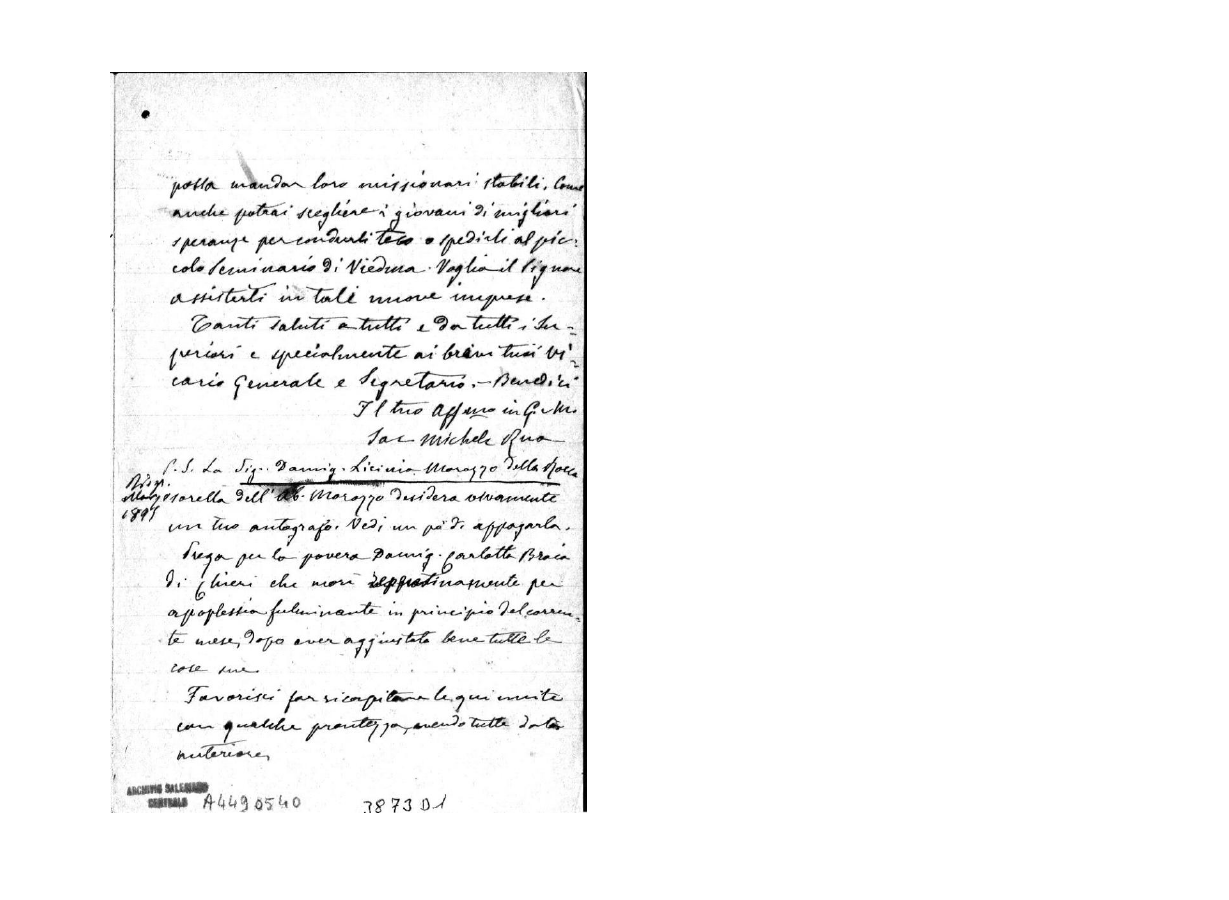 possa mandar loro missionari stabili. Come
anche potrai scegliere i giovani di migliori
speranze per condurli teco o spedirli al pic-
colo Seminario di Viedma. Voglia il Signore
assisterti in tali nuove imprese.
Tanti saluti a tutti e da tutti i Su-
periori e specialmente ai bravi tuoi Vi-
cario Generale e Segretario. – Benedici
Il tuo Aff.mo in G. e M.
Sac. Michele Rua
P.S. La Sig. Damig. Licinia Morozzo della Rocca
sorella dell'Ab. Morozzo desidera vivamente
un tuo autografo. Vedi un po' di appagarla.
Prega per la povera Damig. Carlotta Braia
di Chieri che morì repentinamente per
apoplessia fulminante in principio del corren-
te mese, dopo aver aggiustato bene tutte le
cose sue.
Favorisci far ricapitare le qui unite
con qualche prontezza, avendo tutte data
anteriore,
ARCHIVIO SALESIANO
CENTRALE A4490540 3873 D1